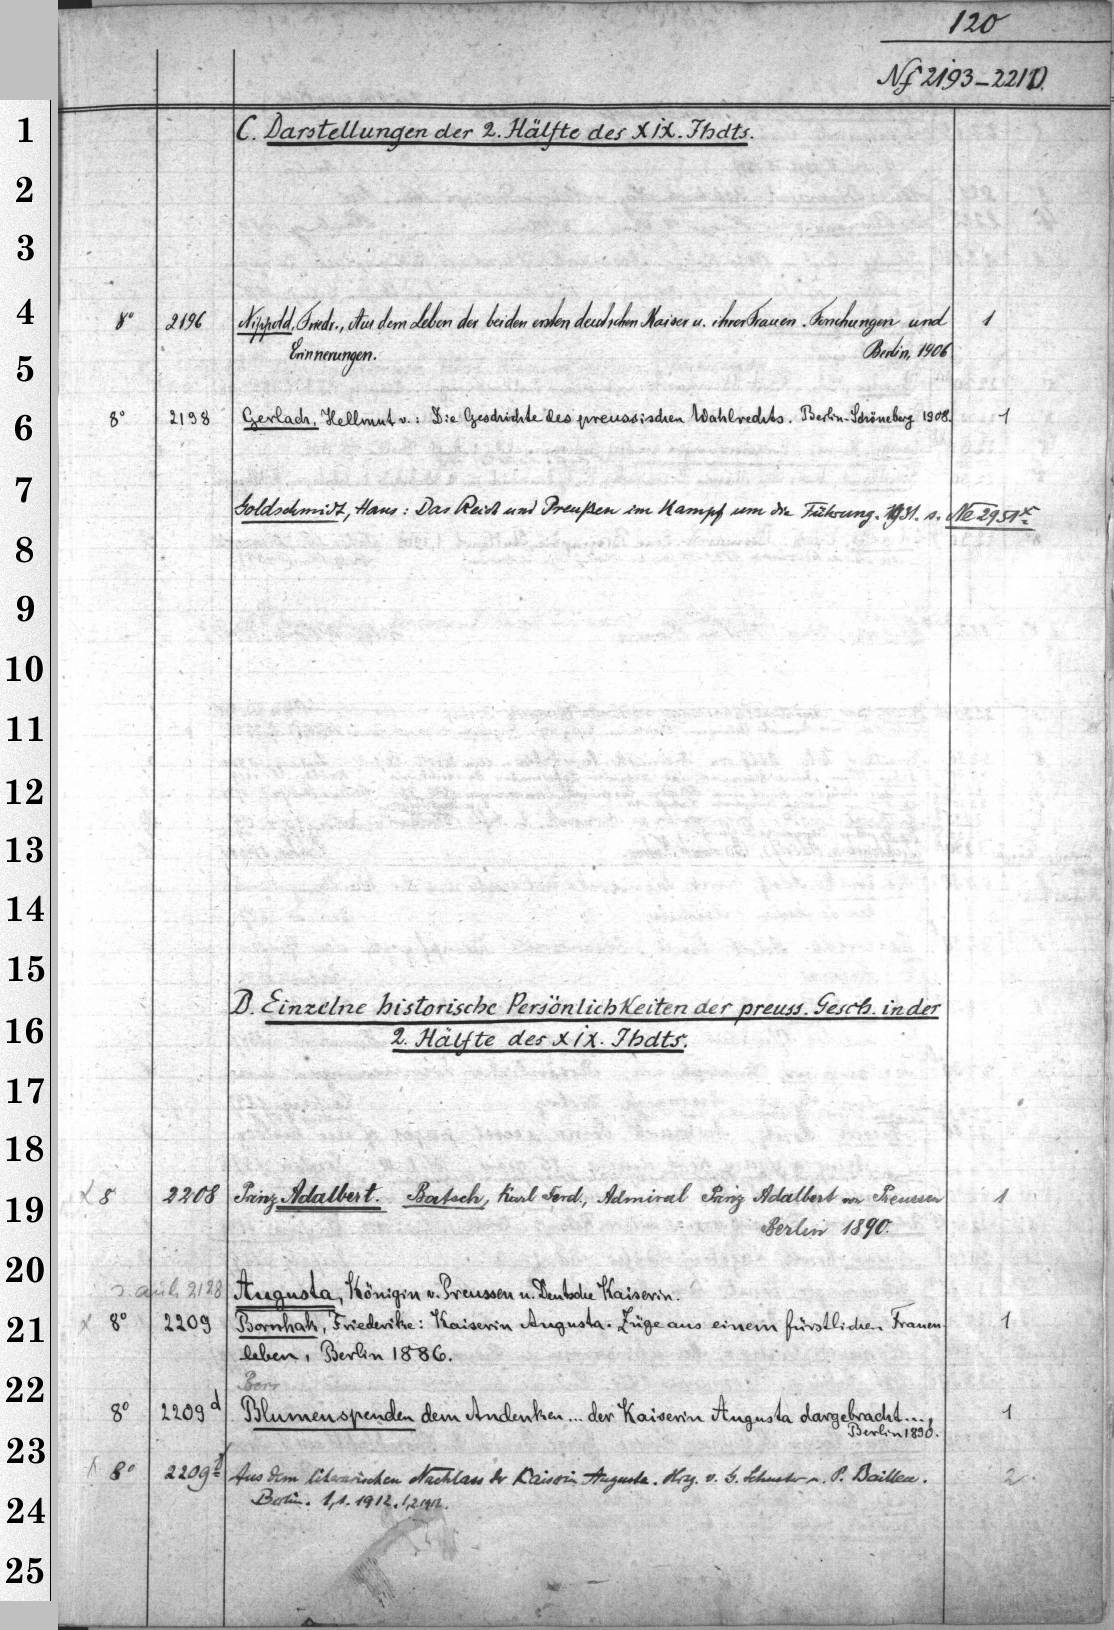 120
Nf 2193-2210
1
C. Darstellungen der 2. Hälfte des XIX. Jhdts.
2
3
4
8° 2196 Nippold, Friedr., Aus dem Leben der beiden ersten deutschen Kaiser u. ihrer Frauen. Forschungen und 1
Erinnerungen. Berlin, 1906
5
6
8° 2198 Gerlach, Hellmut v.: Die Geschichte des preussischen Wahlrechts. Berlin-Schöneberg 1908. 1
7
Goldschmidt, Hans: Das Reich und Preußen im Kampf um die Führung. 1931. s. Ne 2951x
8
9
10
11
12
13
14
15
D. Einzelne historische Persönlichkeiten der preuss. Gesch. in der
16
2. Hälfte des XIX. Jhdts.
17
18
19
x 8 2208 Prinz Adalbert. Batsch, Karl Ferd., Admiral Prinz Adalbert von Preussen 1
Berlin 1890.
20
s. auch 2128 Augusta, Königin v. Preussen u. Deutsche Kaiserin.
21
x 8° 2209 Bornhak, Friederike: Kaiserin Augusta. Züge aus einem fürstlichen Frauen- 1
leben, Berlin 1886.
22
8° 2209d Blumenspenden dem Andenken... der Kaiserin Augusta dargebracht..., 1
Berlin 1890.
23
8° 2209f Aus dem literarischen Nachlass der Kaiserin Augusta. Hrg. v. G. Schuster u. P. Bailleu. 2
24
Berlin. 1,1. 1912. 1,2 1912.
25